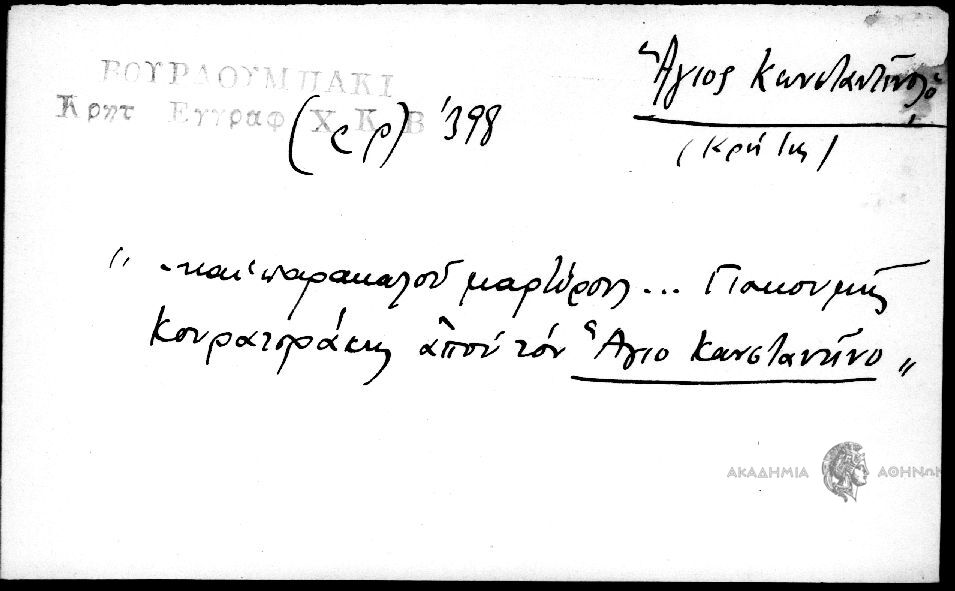 ΒΟΥΡΔΟΥΜΠΑΚΙ
Κρητ Εγγραφ Χ Κ Β
(ρρ) 398
Ἅγιος Κωνσταντῖνος
(Κρήτης)
" -καὶ παρακαλοῦ μαρτύροι ... Γιακουμῆς
Κουρατοράκης ἀποὺ τὸν Ἅγιο Κωνσταντῖνο "
ΑΚΑΔΗΜΙΑ ΑΘΗΝΩΝ